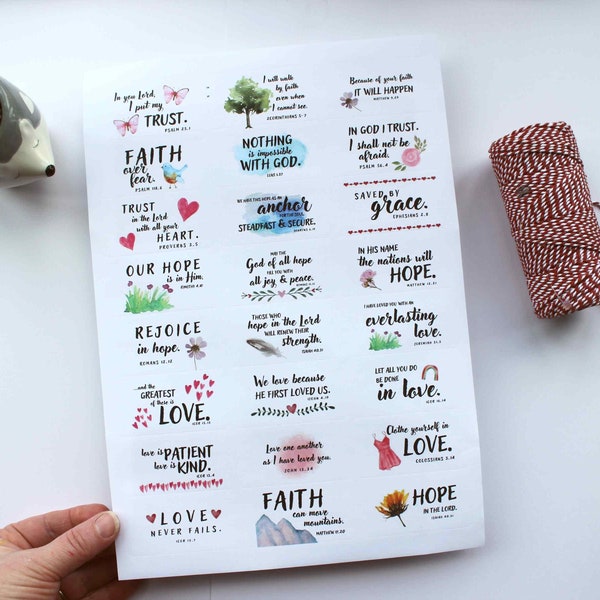 In you Lord,
I put my
TRUST.
PSALM 25.1
I will walk
by faith
even when
I cannot see.
2CORINTHIANS 5-7
Because of your faith
IT WILL HAPPEN
MATTHEW 9.29
FAITH
over
fear.
PSALM 118.6
NOTHING
is impossible
WITH GOD.
LUKE 1.37
IN GOD I TRUST.
I shall not be
afraid.
PSALM 56.4
TRUST
in the Lord
with all your
HEART.
PROVERBS 3.5
WE HAVE THIS HOPE AS AN
anchor
FOR THE SOUL,
STEADFAST & SECURE.
HEBREWS 6.19
SAVED BY
grace.
EPHESIANS 2.8
OUR HOPE
is in Him.
MAY THE
God of all hope
FILL YOU WITH
all joy & peace.
ROMANS 15.13
IN HIS NAME
the nations will
HOPE.
MATTHEW 12.21
REJOICE
in hope.
ROMANS 12.12
THOSE WHO
hope in the Lord
WILL RENEW THEIR
strength.
ISAIAH 40.31
I HAVE LOVED YOU WITH AN
everlasting
love.
JEREMIAH 31.3
...and the
GREATEST
of these is
LOVE.
1COR 13.13
We love because
HE FIRST LOVED US.
LET ALL YOU DO
BE DONE
in love.
1COR 16.14
love is PATIENT
love is KIND.
1COR 13.4
Love one another
as I have loved you.
JOHN 13.34
Clothe yourself in
LOVE.
COLOSSIANS 3.14
LOVE
NEVER FAILS.
1COR 13.7
FAITH
can move
mountains.
MATTHEW 17.20
HOPE
IN THE LORD.
ISAIAH 40.31